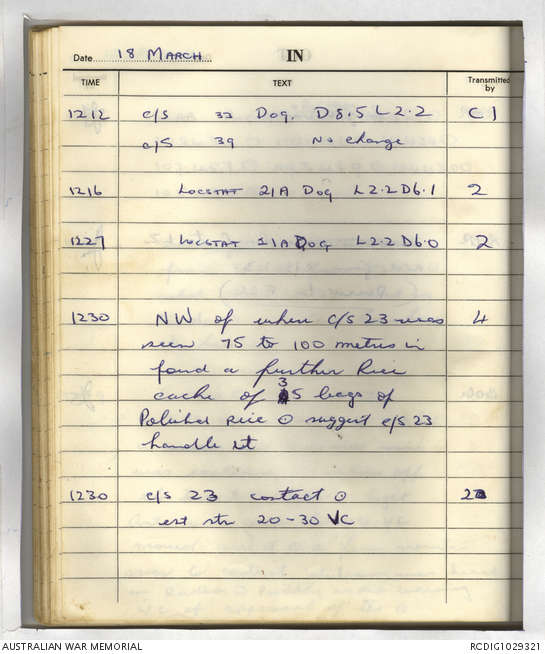 Date 18 MARCH IN
TIME TEXT Transmitted by
1212 c/s 33 Dog. D 8.5 L 2.2 C 1
c/s 39 No change
1216 LOCSTAT 21A Dog L2.2 D6.1 2
1227 LOCSTAT 21A Dog L2.2 D6.0 2
1230 NW of where c/s 23 was 4
seen 75 to 100 metres in
found a further Rice
cache of 35 bags of
Polished rice ⊙ suggest c/s 23
handle it
1230 c/s 23 contact ⊙ 2
est str 20-30 VC
AUSTRALIAN WAR MEMORIAL RCDIG1029321